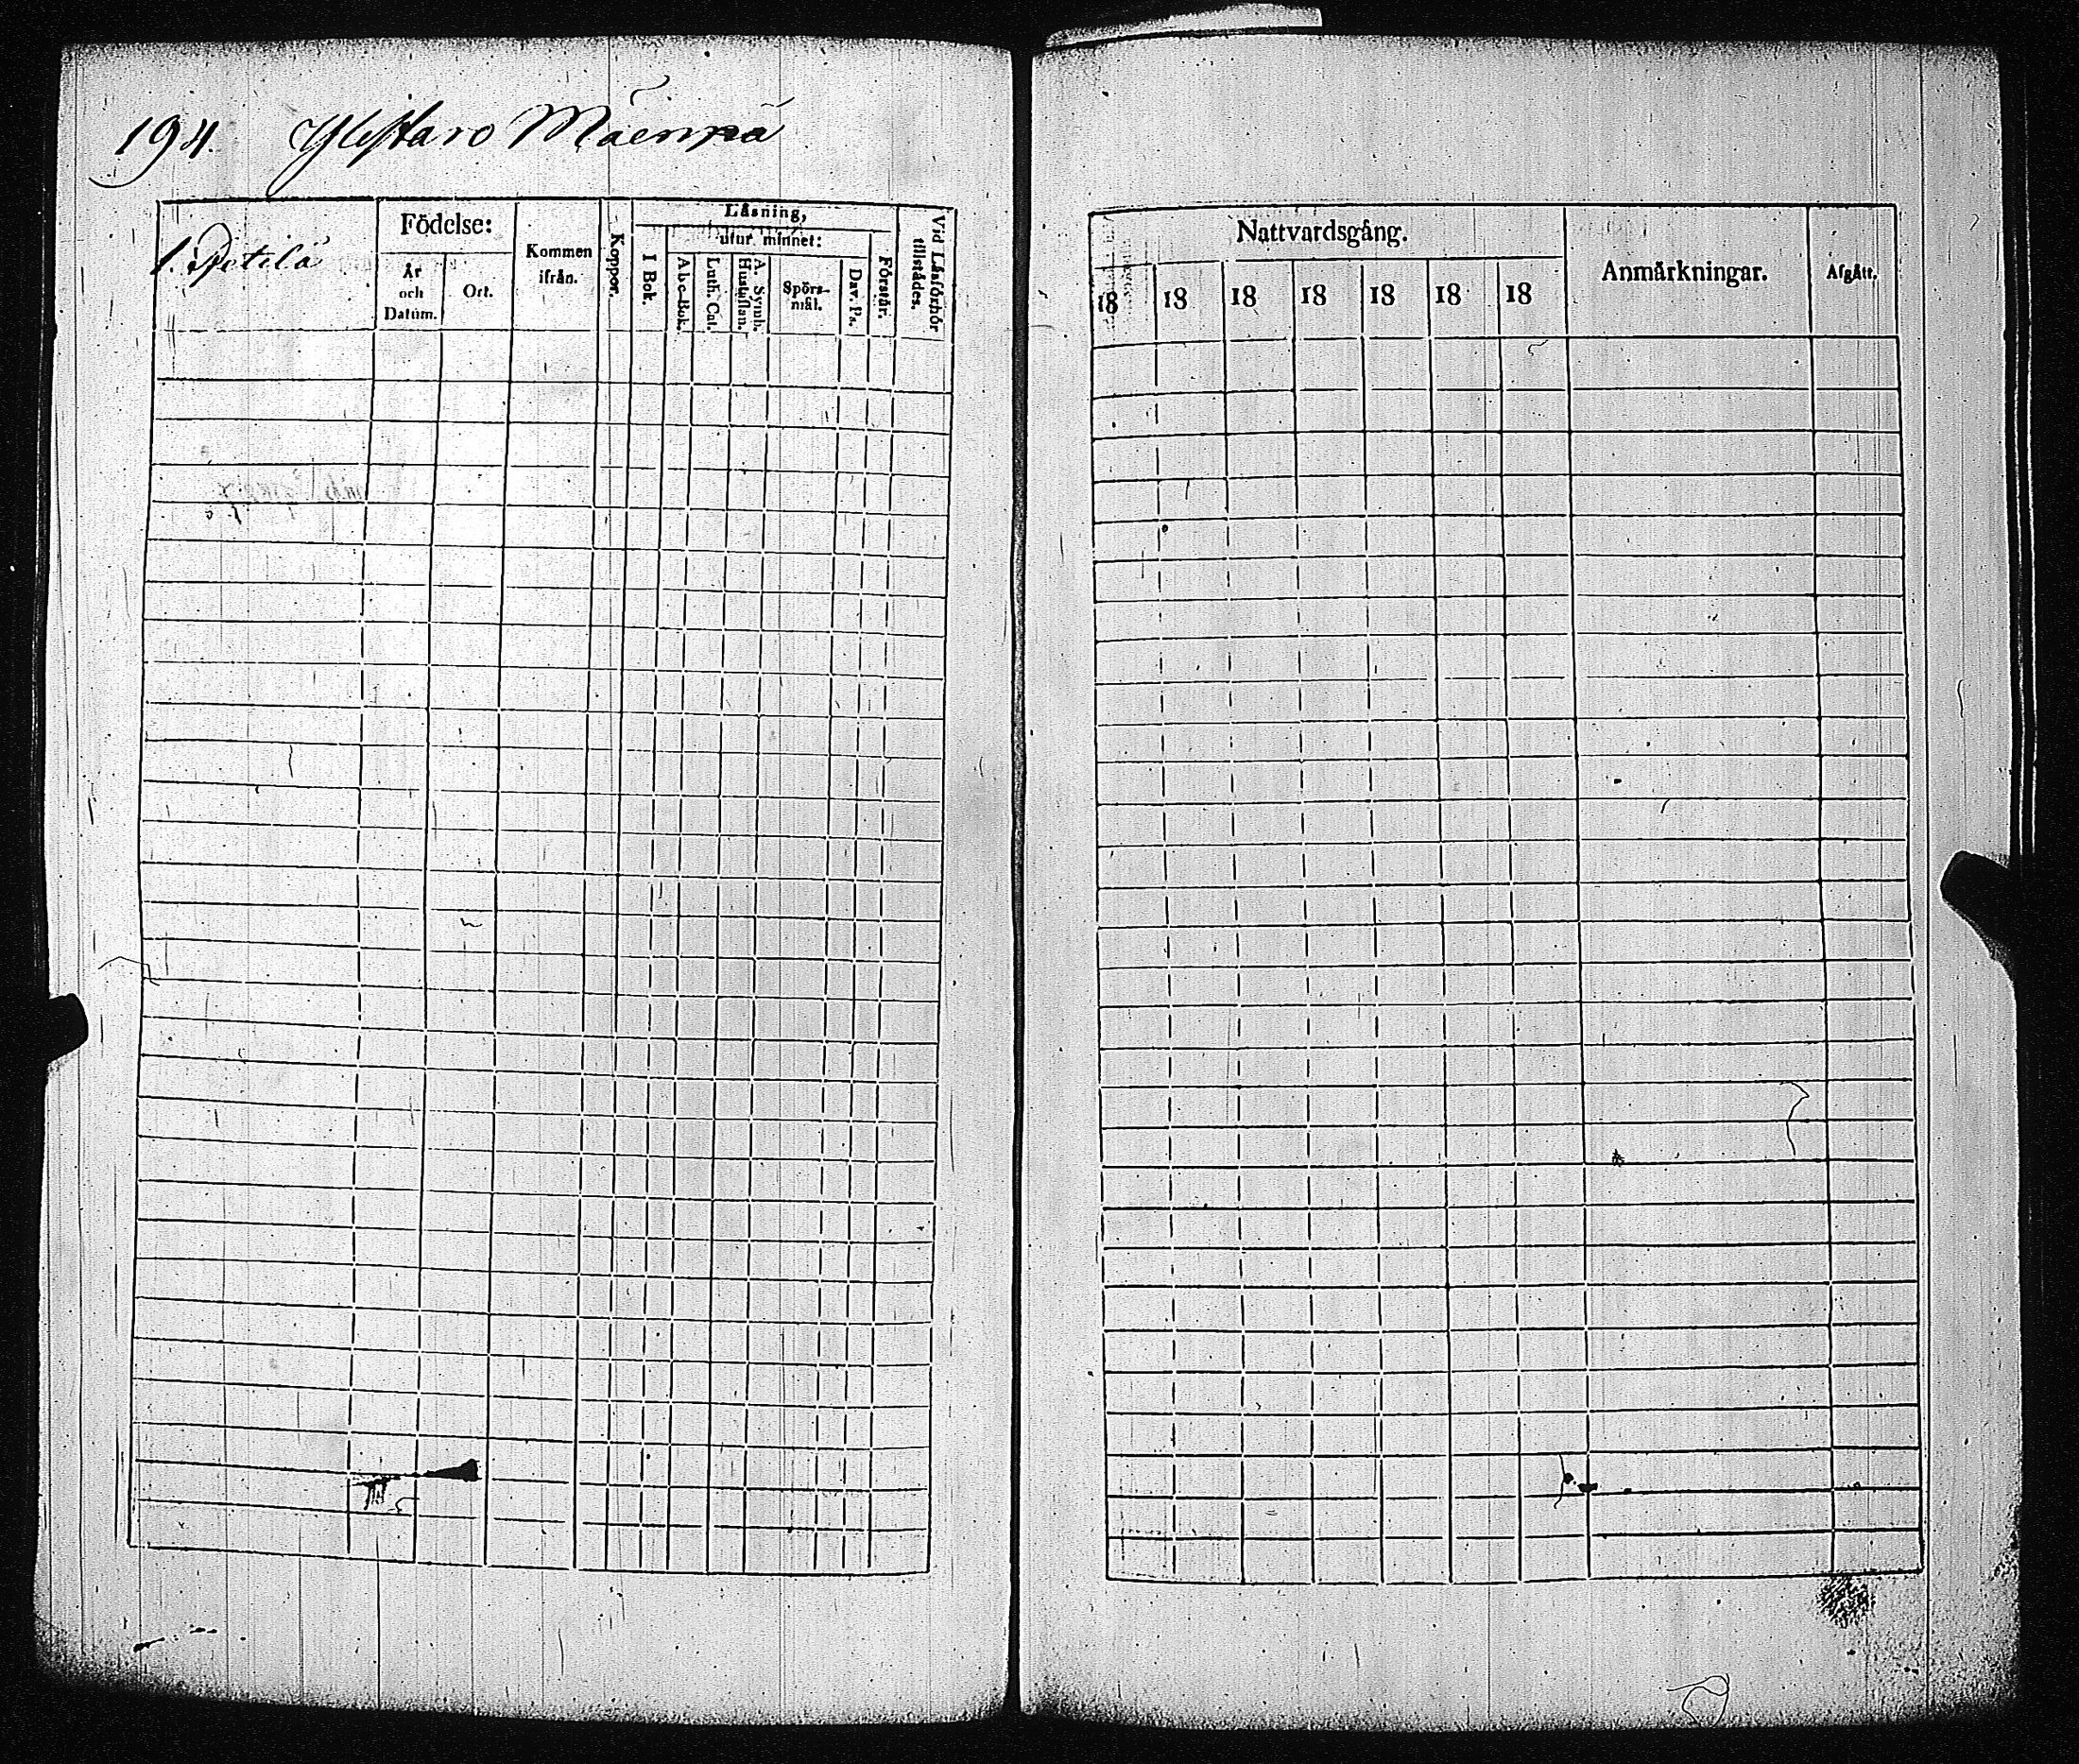 194. Ylistaro Mäenpä
1. Petilä
Födelse:
År och Datum.
Ort.
Kommen ifrån.
Koppor.
Läsning,
utur minnet:
I Bok.
Abc-Bok.
Luth. Cat.
A. Symb. Hustaflan.
Spörs-mål.
Dav. Ps.
Förstår.
Vid Läsförhör tillstädes.
Nattvardsgång.
18 18 18 18 18 18 18
Anmärkningar.
Afgått.